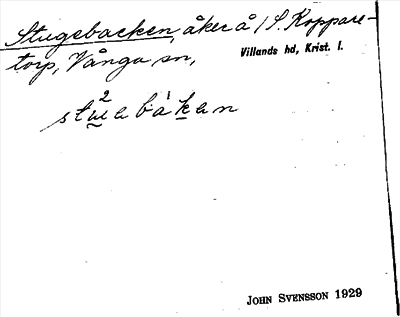 Stugebacken, åker å 1 S. Koppare-
torp, Vånga sn,
Villands hd, Krist. l.
stu²abàkan
JOHN SVENSSON 1929